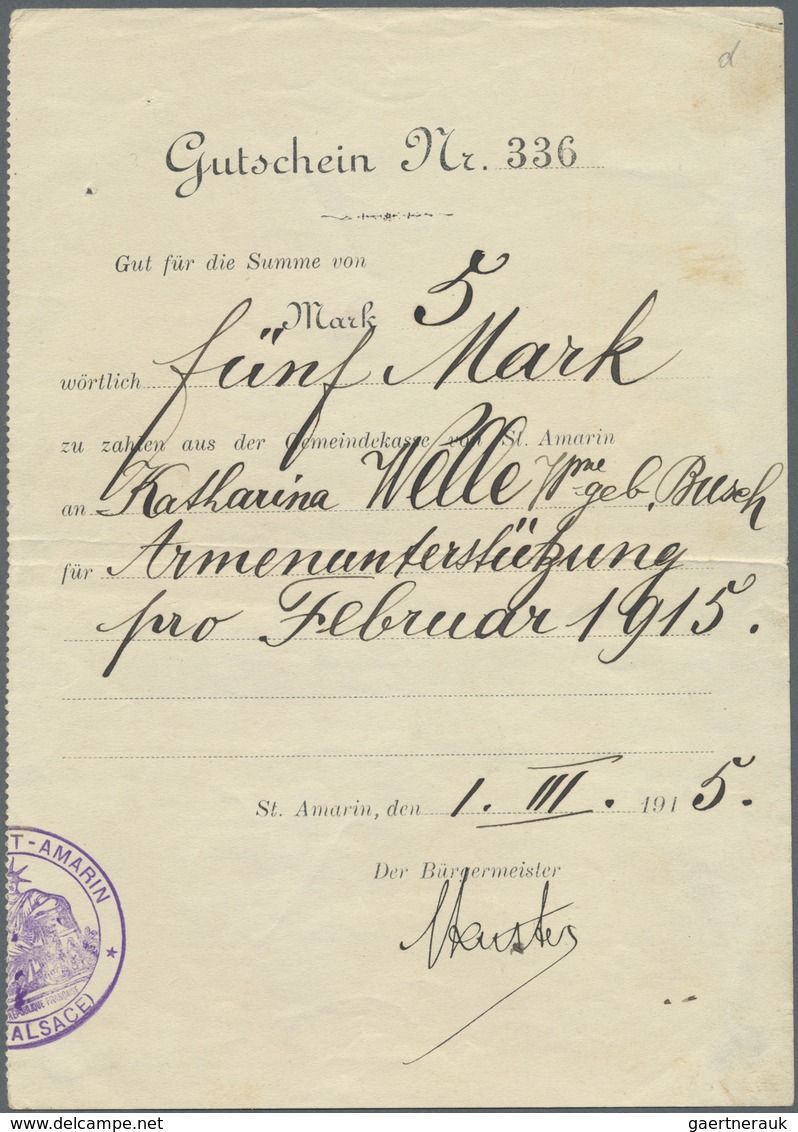 d
Gutschein Nr. 336
Gut für die Summe von
Mark 5
wörtlich fünf Mark
zu zahlen aus der Gemeindekasse von St. Amarin
an Katharina Welle Wme geb. Busch
für Armenunterstützung
pro Februar 1915.
St. Amarin, den 1. III. 1915.
Der Bürgermeister
T-AMARIN
REPUBLIQUE FRANÇAISE
(ALSACE)
gaertnerauk